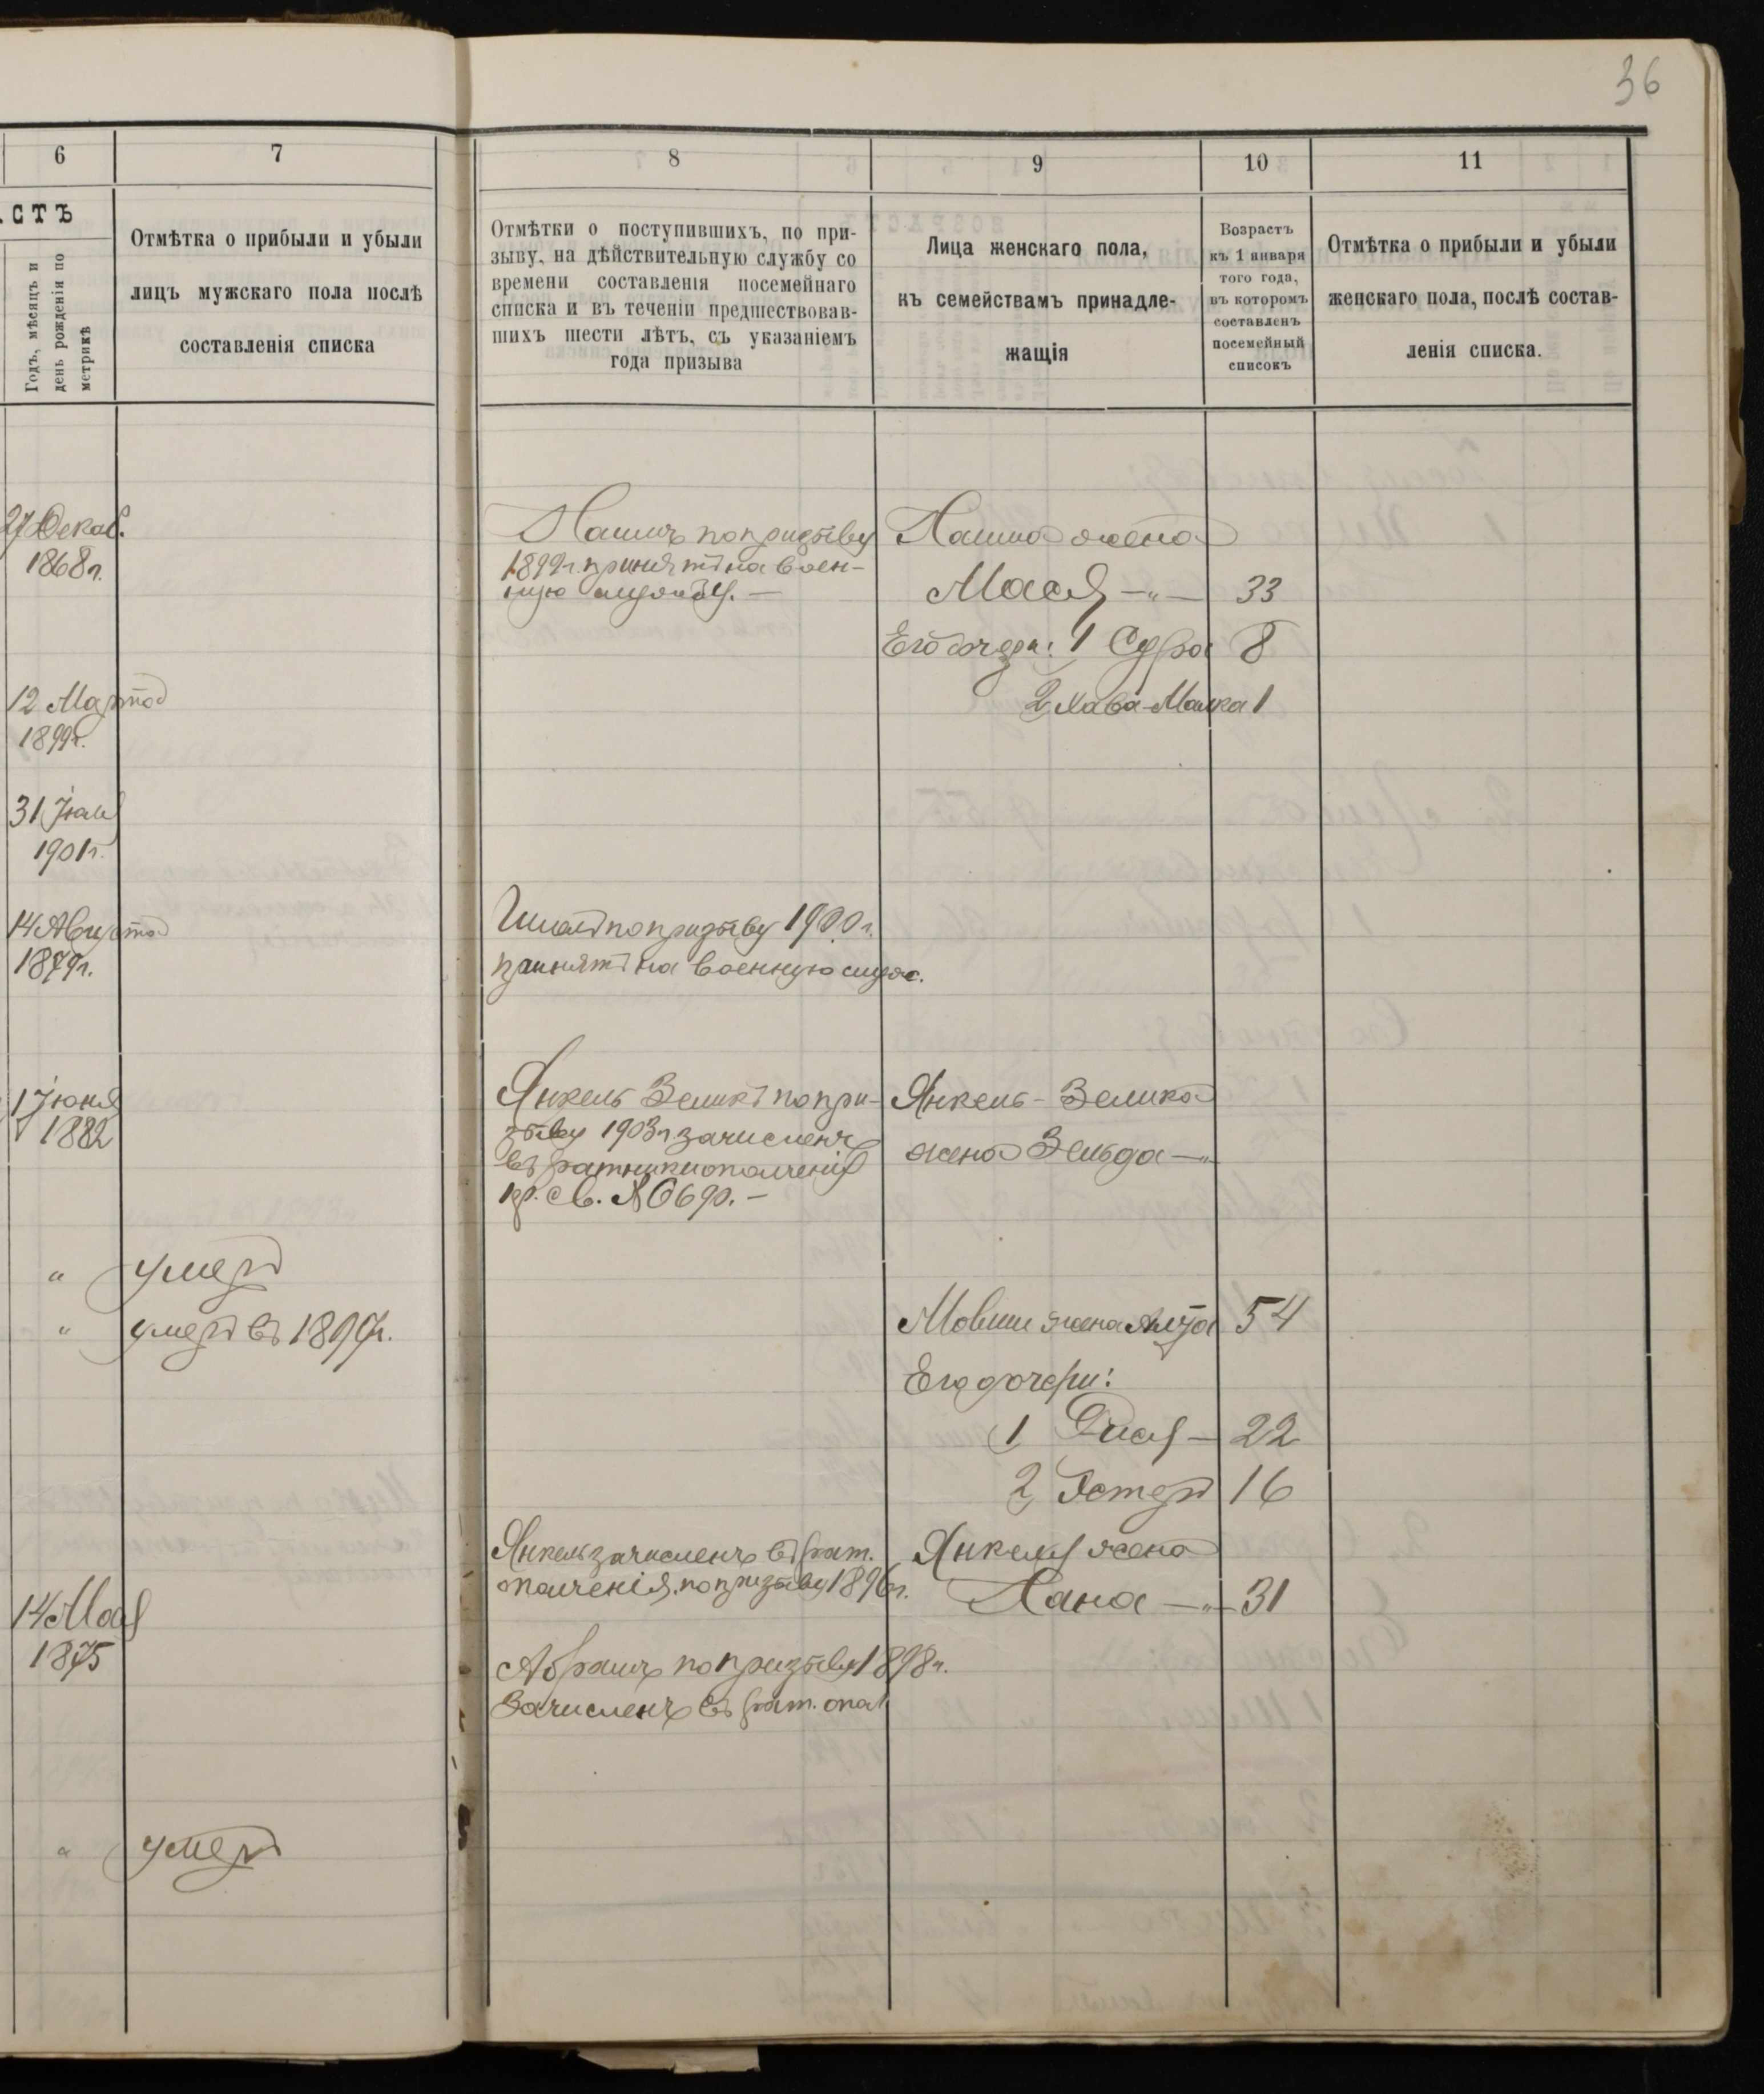 36
6
7
8
9
10
11
СТЪ
Годъ, мѣсяцъ и
день рожденія по
метрикѣ
Отмѣтка о прибыли и убыли
лицъ мужскаго пола послѣ
составленія списка
Отмѣтки о поступившихъ, по при-
зыву, на дѣйствительную службу со
времени составленія посемейнаго
списка и въ теченіи предшествовав-
шихъ шести лѣтъ, съ указаніемъ
года призыва
Лица женскаго пола,
къ семействамъ принадле-
жащія
Возрастъ
къ 1 января
того года,
въ которомъ
составленъ
посемейный
списокъ
Отмѣтка о прибыли и убыли
женскаго пола, послѣ состав-
ленія списка.
27 Декаб.
1868 г.
по призыву
1899 г. принятъ на воен-
ную службу. —
жена
Мася —„— 33
Его дочери: 1 Сура 8
2 Хава-Малка 1
12 Марта
1899 г.
31 Іюля
1901 г.
14 Августа
1879 г.
по призыву 1900 г.
принятъ на военную служ.
1 Іюня
1882
Янкель Зеликъ по при-
зыву 1903 г. зачисленъ
въ ратники ополченія
св. № 6690. —
Янкель-Зелика
жена Зельда —„
„ умеръ
„ умеръ въ 1899 г.
Мовши жена 54
Его дочери:
1 Рися — 22
2 Эстеръ 16
Янкель зачисленъ въ рат.
ополченія по призыву 1896 г.
Янкеля жена
Хана —„— 31
14 Мая
1875
Абрамъ по призыву 1898 г.
Зачисленъ въ рат. опол
„ умеръ